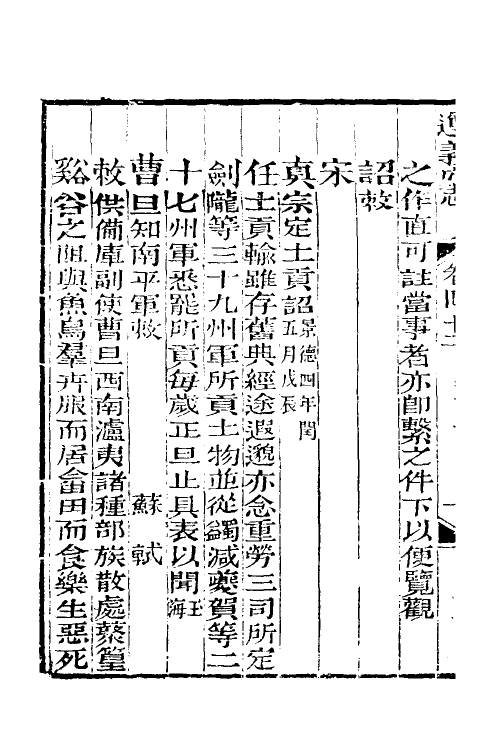 遵義府志 卷四十二
之作直可註當事者亦卽繫之件下以便覽觀
詔敕
宋
真宗定土貢詔 景德四年閏五月戊辰
任土貢輸雖存舊典經途遐邈亦念重勞三司所定
劍隴等三十九州軍所貢土物並從蠲減夔賀等二
十七州軍悉罷所貢每歲正旦止具表以聞 玉海
曹旦知南平軍敕 蘇軾
敕供備庫副使曹旦西南瀘夷諸種部族散處蓁篁
谿谷之間與魚鳥羣卉服而居畬田而食樂生惡死